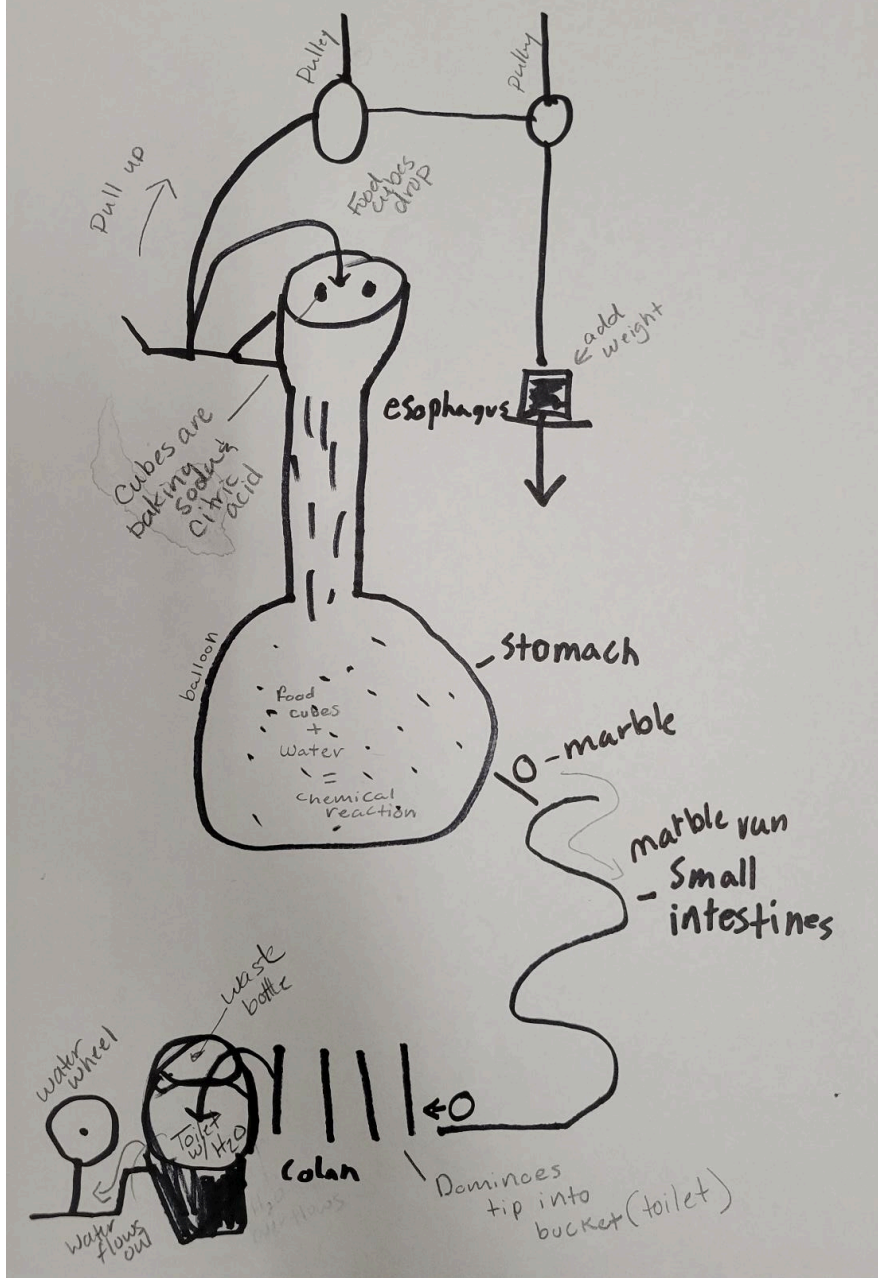 Pulley
Pulley
Pull up
Food
cubes
drop
add
weight
esophagus
Cubes are
baking
soda &
Citric
acid
Stomach
balloon
food
cubes
+
water
=
chemical
reaction
marble
marble run
Small
intestines
waste
bottle
water
wheel
Toilet
w/ H2O
Colan
Dominoes
tip into
bucket (toilet)
water
flows
out
H2O
overflows